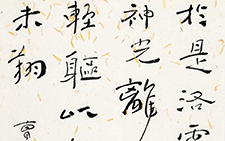 於是洛靈
神光離
輕軀以
未翔